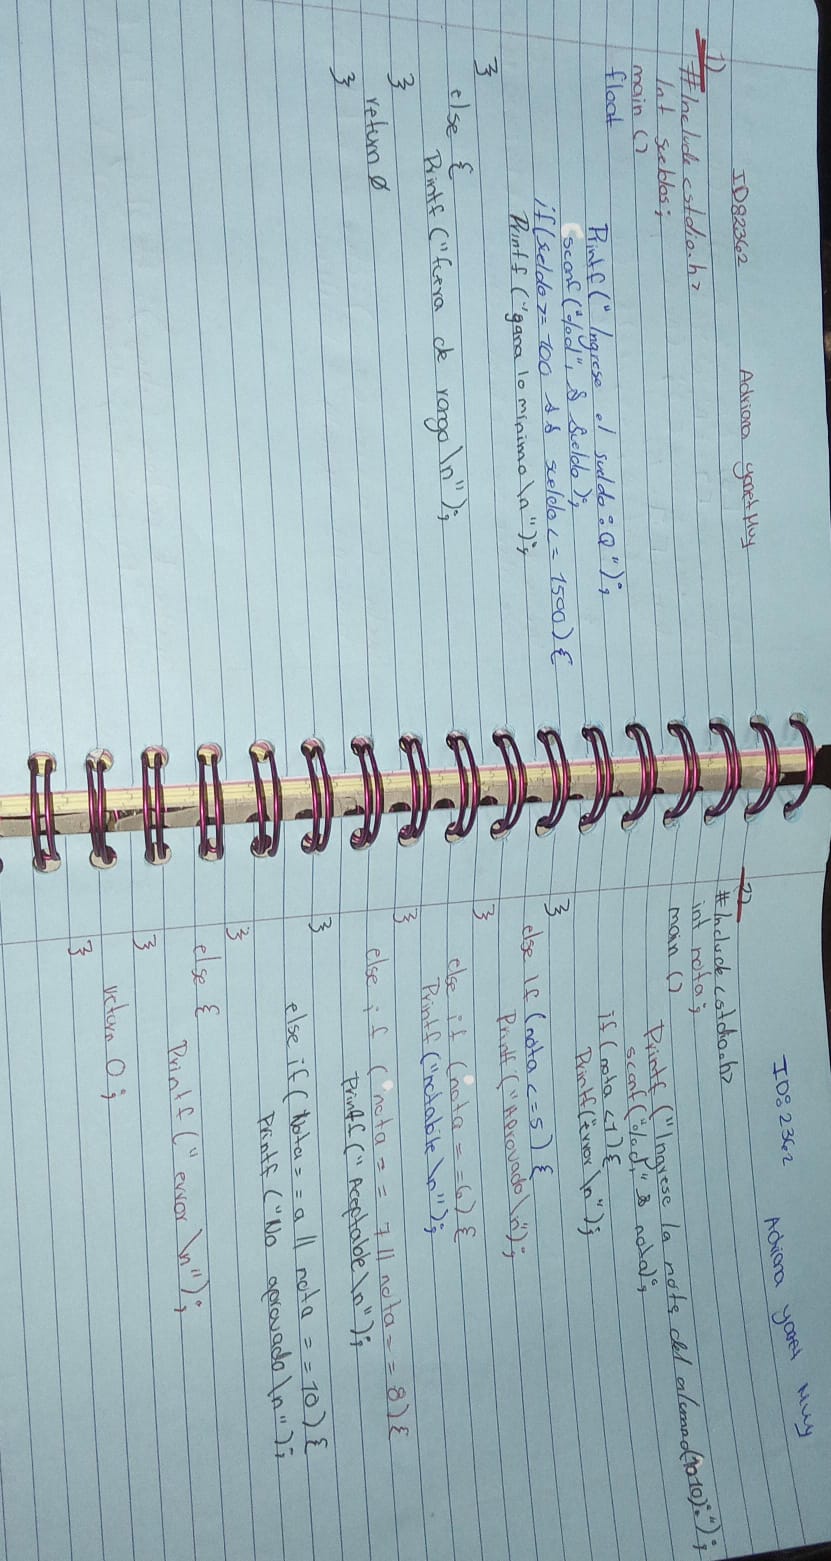 ID82362 Adriana yanet Muy
1)
#Include <stdio.h>
Int sueldos;
main ()
float
Printf (" Ingrese el sueldo: Q ");
scanf ("%d", & Sueldo);
if (sueldo >= 700 && sueldo <= 1500) {
Printf ("gana lo minimo \n");
}
else {
Printf ("fuera de rango \n");
}
return 0
}
ID: 2362 Adriana yanet Muy
2)
#Include <stdio.h>
int nota;
main ()
Printf ("Ingrese la nota del alumno (1a10): ");
scanf ("%d", & nota);
if (nota <1) {
Printf ("error \n");
}
else if (nota <= 5) {
Printf ("Aprovado \n");
}
else if (nota == 6) {
Printf ("notable \n");
}
else if (nota == 7 || nota == 8) {
Printf ("Aceptable \n");
}
else if (Nota == a || nota == 10) {
Printf ("No aprovado \n");
}
else {
Printf (" error \n");
}
return 0;
}